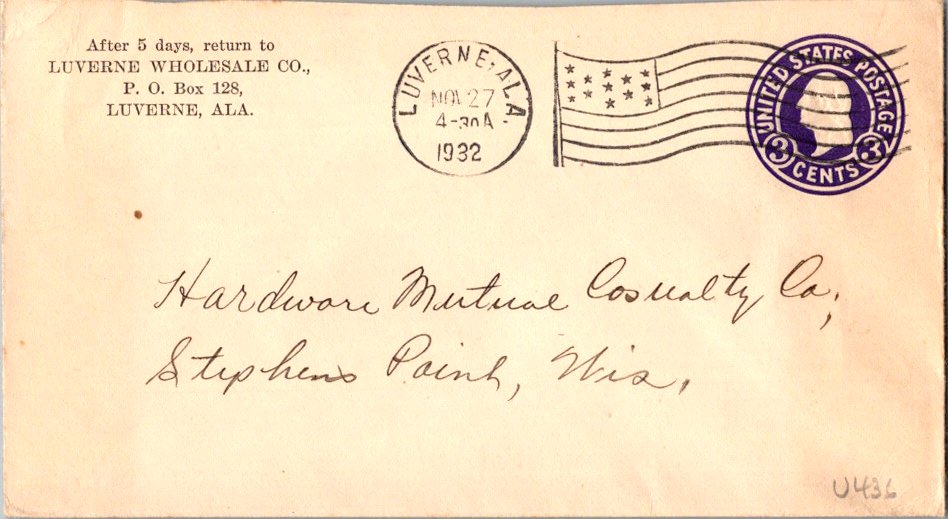 After 5 days, return to
LUVERNE WHOLESALE CO.,
P. O. Box 128,
LUVERNE, ALA.
LUVERNE, ALA.
NOV 27
4-30 A
1932
UNITED STATES POSTAGE
3 CENTS 3
Hardware Mutual Casualty Co,
Stephens Point, Wis.
U436